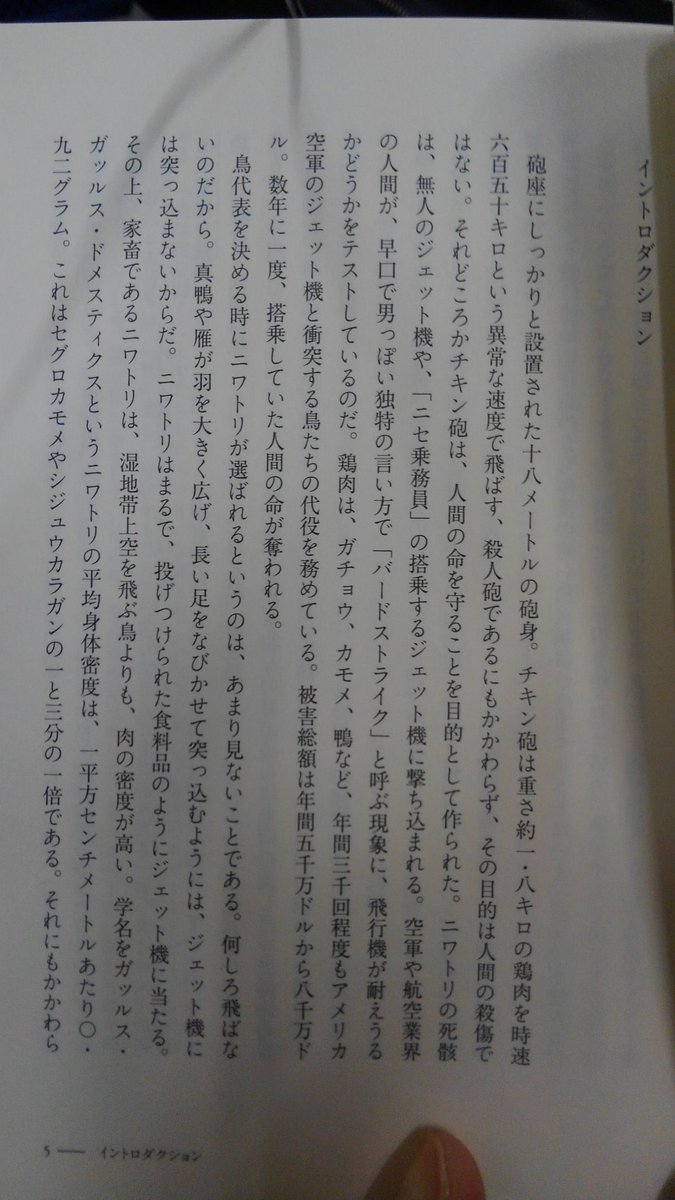 イントロダクション
砲座にしっかりと設置された十八メートルの砲身。チキン砲は重さ約一・八キロの鶏肉を時速
六百五十キロという異常な速度で飛ばす、殺人砲であるにもかかわらず、その目的は人間の殺傷で
はない。それどころかチキン砲は、人間の命を守ることを目的として作られた。ニワトリの死骸
は、無人のジェット機や、「ニセ乗務員」の搭乗するジェット機に撃ち込まれる。空軍や航空業界
の人間が、早口で男っぽい独特の言い方で「バードストライク」と呼ぶ現象に、飛行機が耐えうる
かどうかをテストしているのだ。鶏肉は、ガチョウ、カモメ、鴨など、年間三千回程度もアメリカ
空軍のジェット機と衝突する鳥たちの代役を務めている。被害総額は年間五千万ドルから八千万ド
ル。数年に一度、搭乗していた人間の命が奪われる。
鳥代表を決める時にニワトリが選ばれるというのは、あまり見ないことである。何しろ飛ばな
いのだから。真鴨や雁が羽を大きく広げ、長い足をなびかせて突っ込むようには、ジェット機に
は突っ込まないからだ。ニワトリはまるで、投げつけられた食料品のようにジェット機に当たる。
その上、家畜であるニワトリは、湿地帯上空を飛ぶ鳥よりも、肉の密度が高い。学名をガッルス・
ガッルス・ドメスティクスというニワトリの平均身体密度は、一平方センチメートルあたり〇・
九二グラム。これはセグロカモメやシジュウカラガンの一と三分の一倍である。それにもかかわら
5 ── イントロダクション